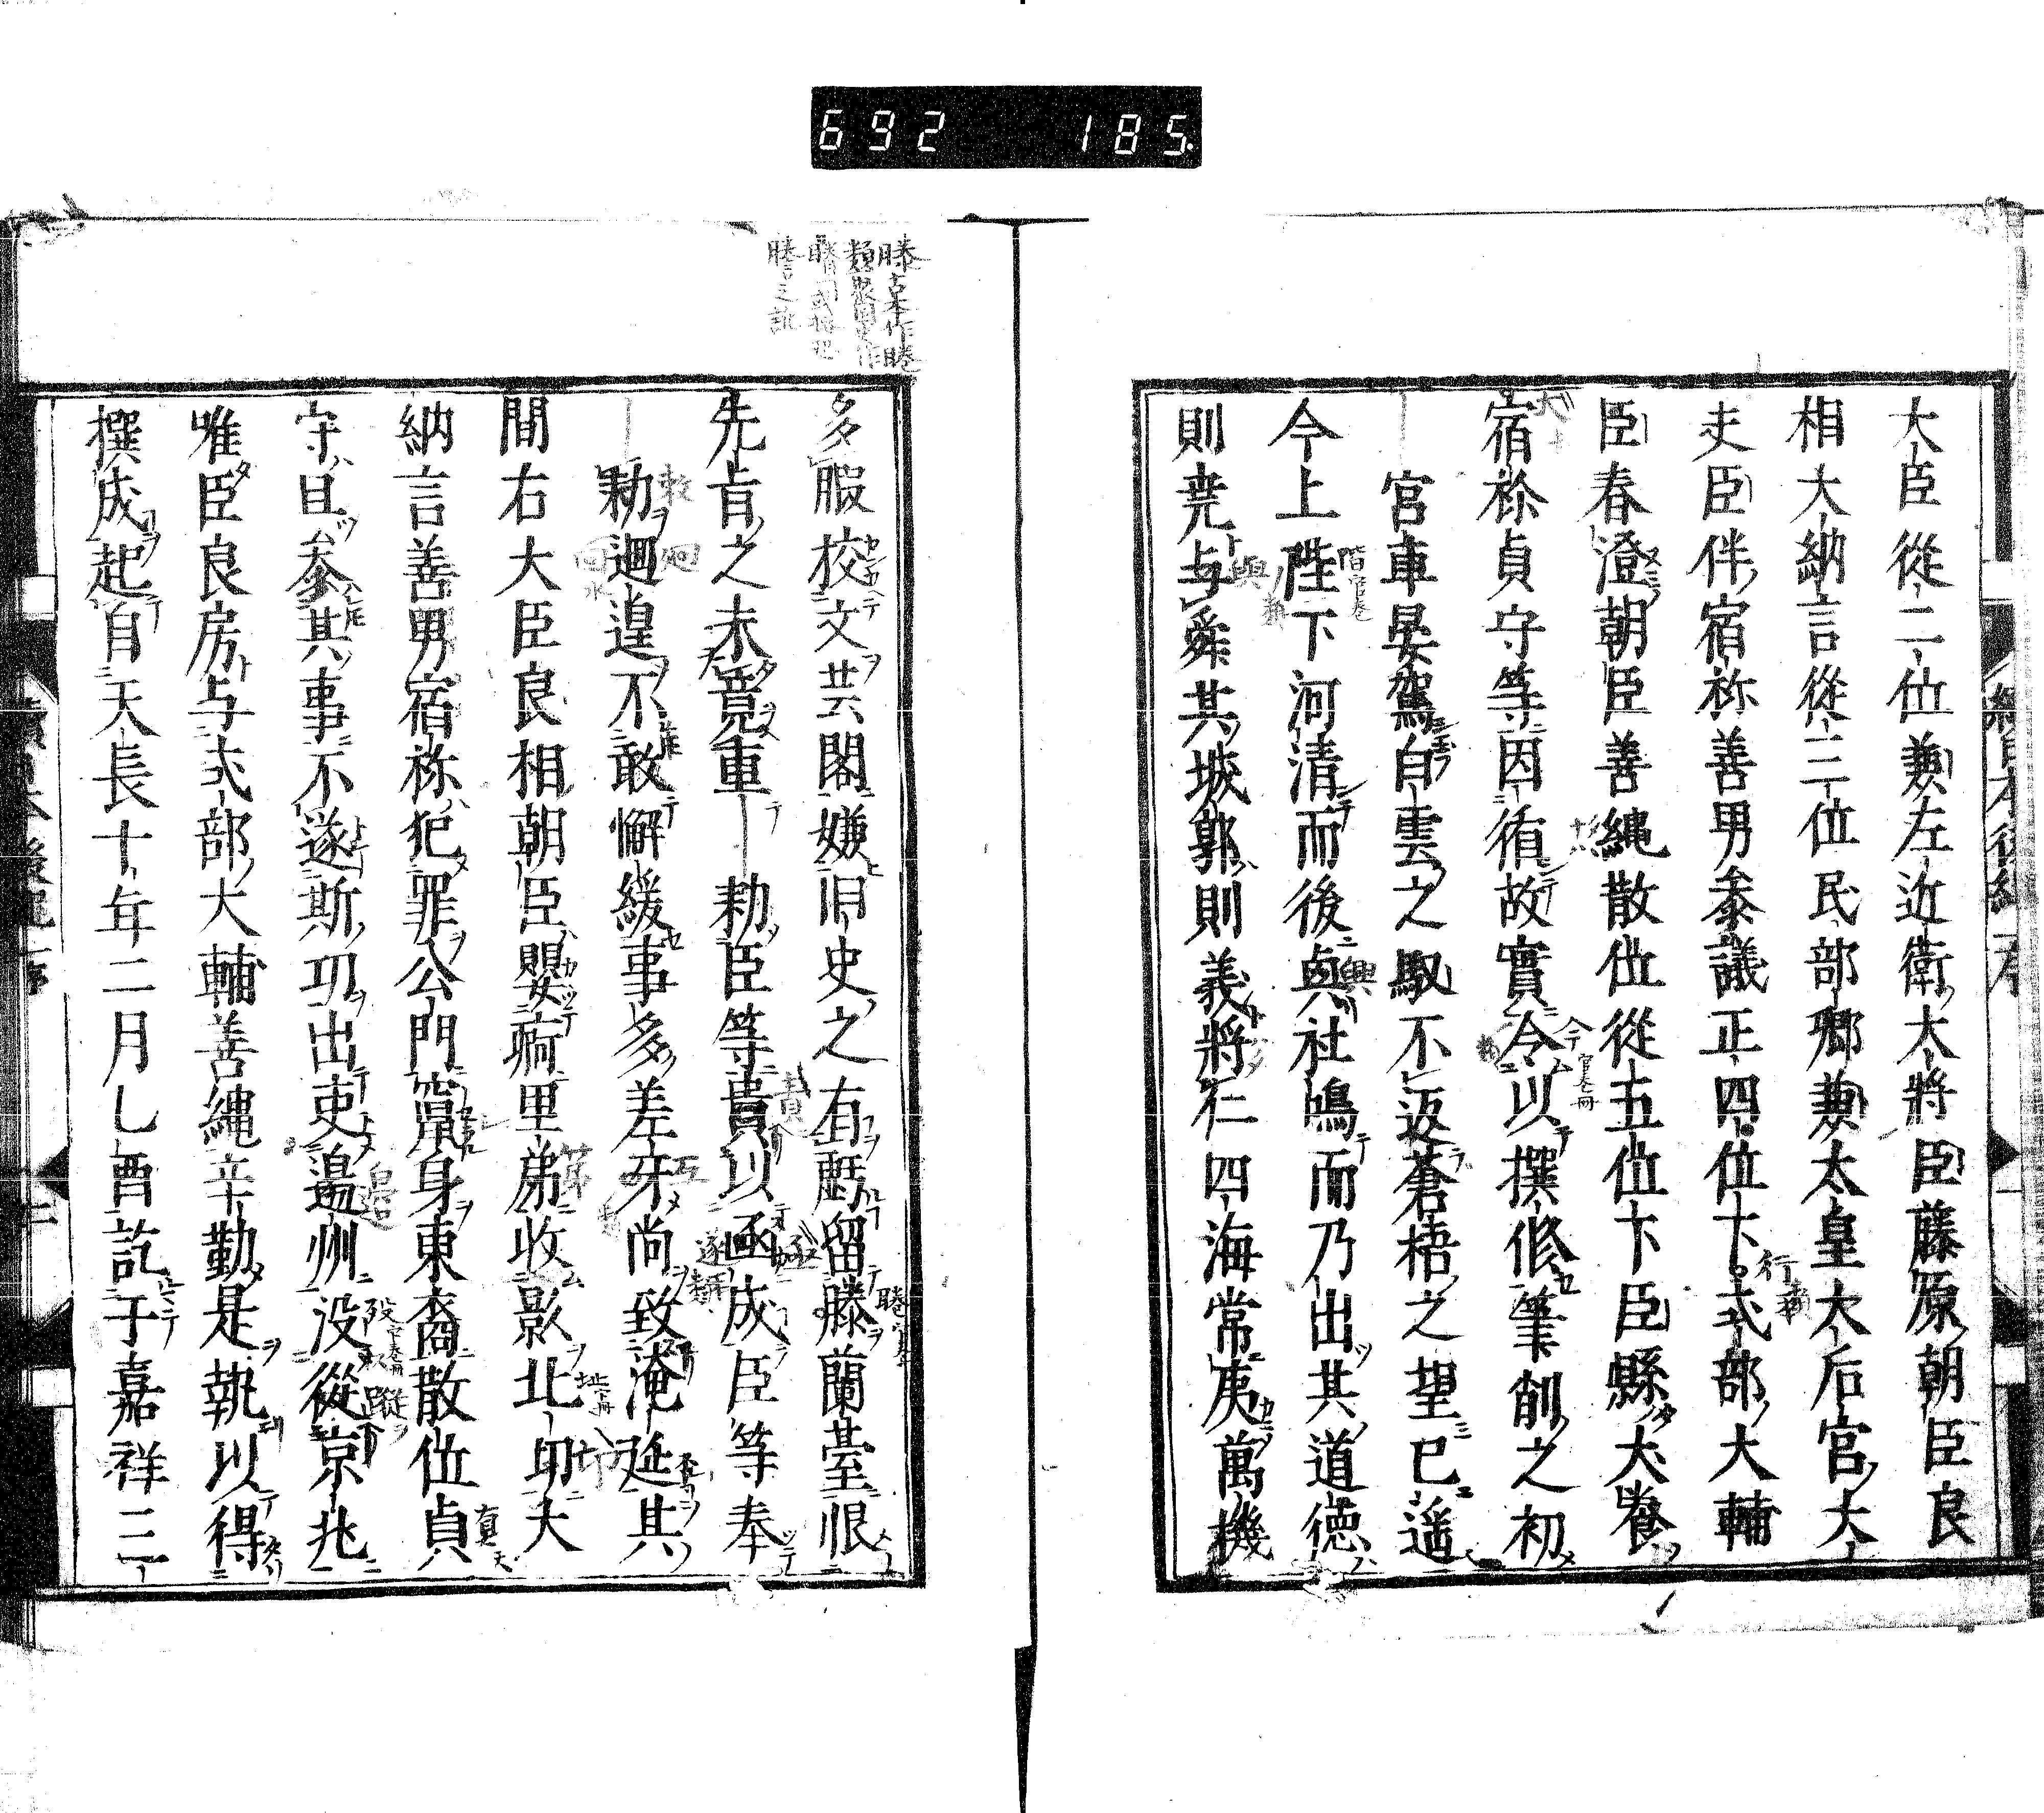 692 185
大臣從二位兼左近衛大將臣藤原朝臣良
相大納言從三位民部卿兼太皇大后宮大
夫臣伴宿祢善男參議正四位下式部大輔
臣春澄朝臣善繩散位從五位下臣縣犬養
宿祢貞守等因循故實令以撰修筆削之初
宮車晏駕白雲之馭不返蒼梧之望已遥
今上陛下河清而後興社鳴而乃出其道德
則尭与舜其城郭則義將仁四海常夷萬機
多暇校文芸閣嫌旧史之有齬留縢蘭臺恨
先旨之未竟重勅臣等責以亟成臣等奉
勅遑不敢懈緩事多差牙尚致淹延其
間右大臣良相朝臣嬰痾里第收影北邙大
納言善男宿祢犯罪公門竄身東裔散位貞
守且參其事不遂斯功出吏邊州没從京兆
唯臣良房与式部大輔善繩辛勤是執以得
撰成起自天長十年二月乙酉訖于嘉祥三